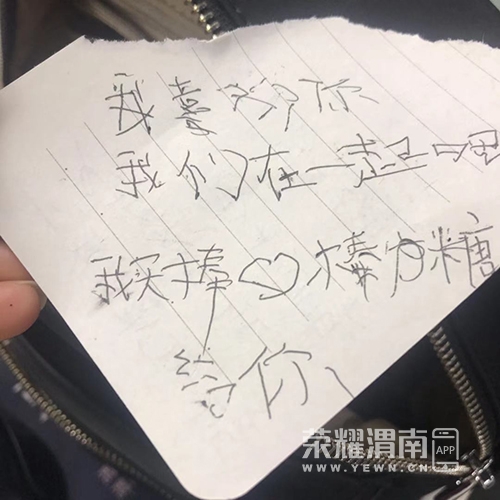 我喜欢你
我们在一起吧
我买棒♡棒方糖
给你、
荣耀渭南 APP
WWW.YEWN.CN